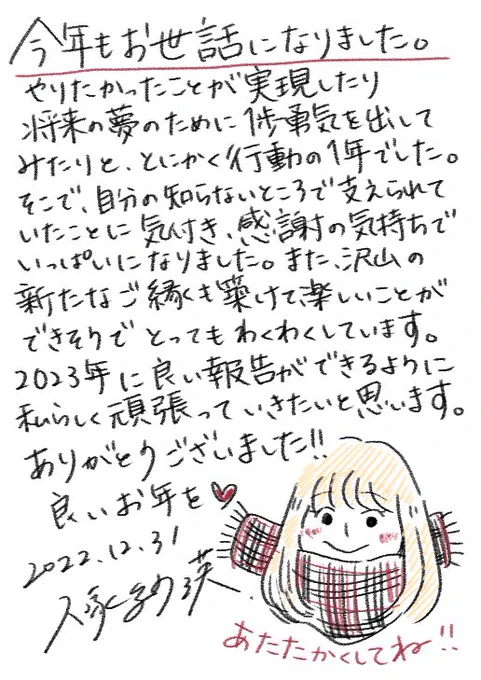 今年もお世話になりました。
やりたかったことが実現したり
将来の夢のために1歩勇気を出して
みたりと、とにかく行動の1年でした。
そこで、自分の知らないところで支えられて
いたことに気付き、感謝の気持ちで
いっぱいになりました。また、沢山の
新たなご縁も築けて、楽しいことが
できそうで とってもわくわくしています。
2023年に良い報告ができるように
私らしく頑張っていきたいと思います。
ありがとうございました!!
良いお年を♥
2022.12.31
あたたかくしてね!!